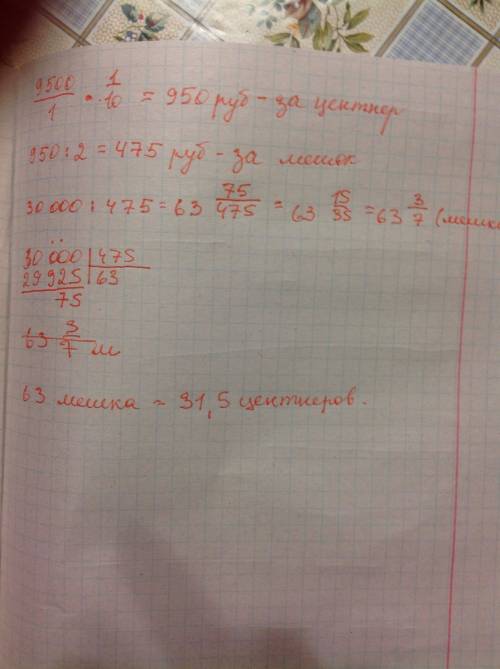 9500/1 · 1/10 = 950 руб - за центнер
950 : 2 = 475 руб - за мешок
30 000 : 475 = 63 75/475 = 63 15/35 = 63 3/7 (мешка
30 000 | 475
29 925 | 63
75
63 3/7 м
63 мешка = 31,5 центнеров.